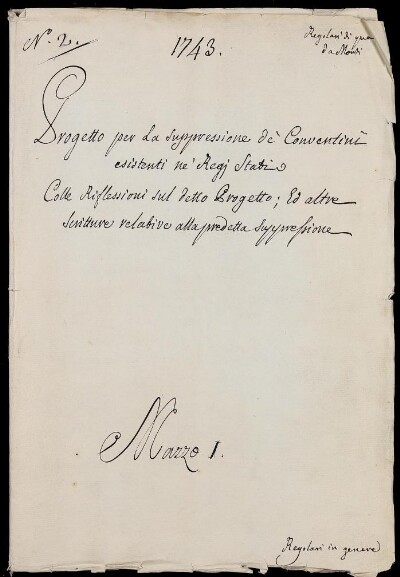 N.° 2.
1743.
Regolari di qua
da Monti
Progetto per la suppressione de' Conventini
esistenti ne' Regj Stati
Colle Riflessioni sul detto Progetto; Ed altre
scritture relative alla predetta suppressione
Mazzo I.
Regolari in genere